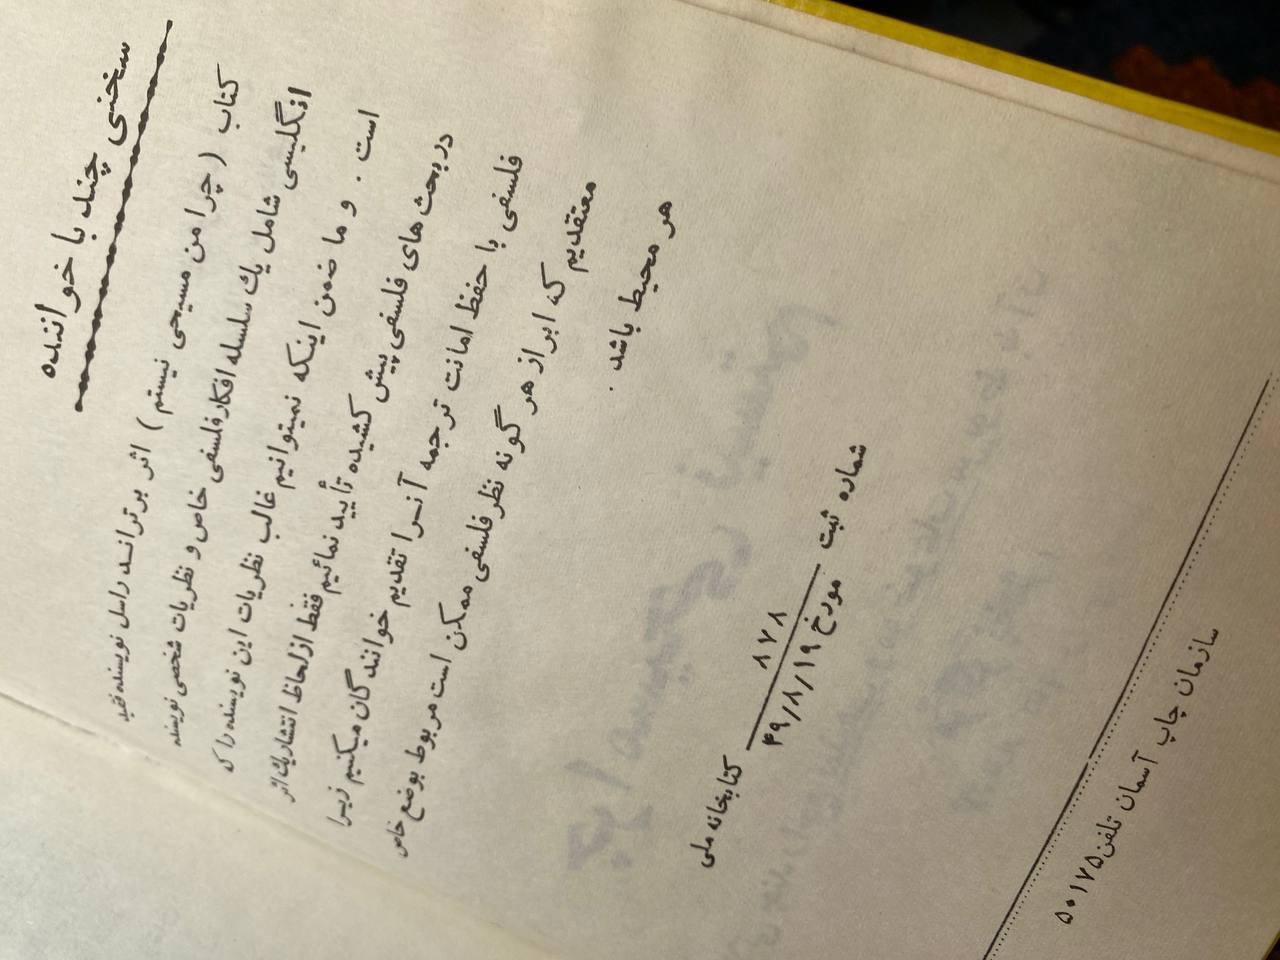 سخنی چند با خواننده
کتاب (چرا من مسیحی نیستم) اثر برتراند راسل نویسنده فقید
انگلیسی شامل یك سلسله افکار فلسفی خاص و نظریات شخصی نویسنده
است . و ما ضمن اینکه نمیتوانیم غالب نظریات این نویسنده را که
در بحث های فلسفی پیش کشیده تأیید نمائیم فقط از لحاظ انتشار یك اثر
فلسفی با حفظ امانت ترجمه آنرا تقدیم خوانندگان میکنیم زیرا
معتقدیم که ابراز هر گونه نظر فلسفی ممکن است مربوط بوضع خاص
هر محیط باشد .
شماره ثبت ۸۷۸
کتابخانه ملی مورخ ۴۹/۸/۱۹
سازمان چاپ آسمان تلفن ۵۰۱۷۵